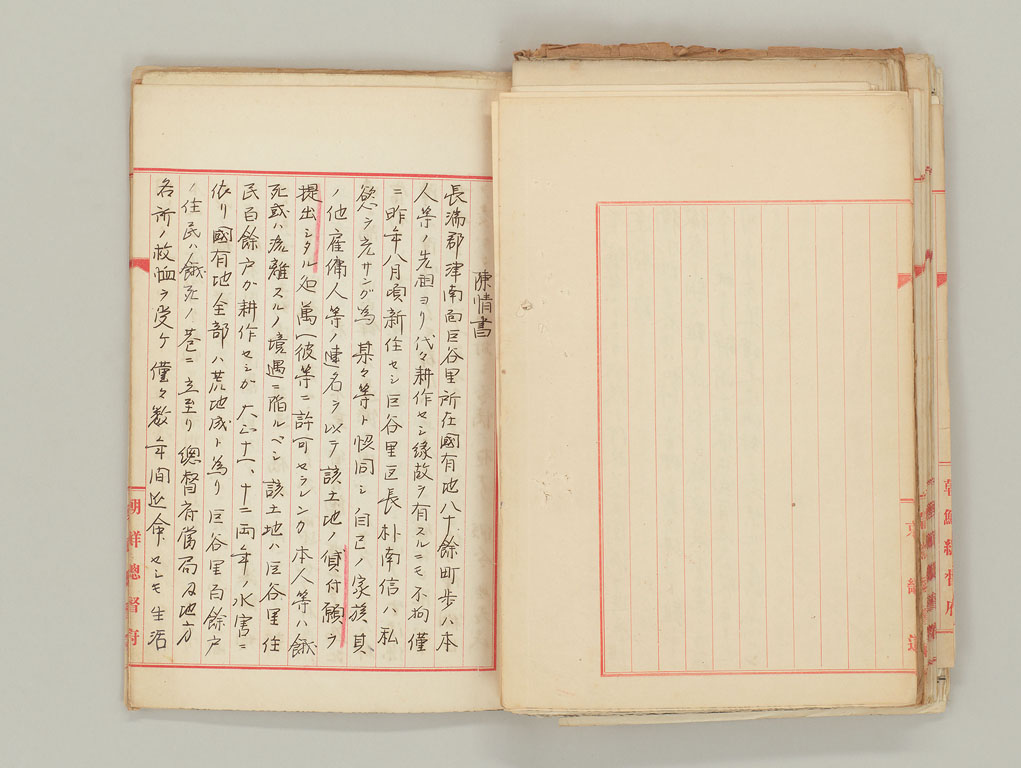 陳情書
長湍郡津南面巨谷里所在國有地八十余町歩ハ本
人等ノ先祖ヨリ代々耕作セシ縁故ヲ有スルニモ不拘僅
ニ昨年八月頃新任セシ巨谷里区長朴南信ハ私
慾ヲ充サンガ為 某々等ト協同シ自己ノ家族其
ノ他雇傭人等ノ連名ヲ以テ該土地ノ貸付願ヲ
提出シタル処萬一彼等ニ許可セラレンカ本人等ハ餓
死或ハ流離スルノ境遇ニ陷ルベシ該土地ハ巨谷里住
民百餘戸カ耕作セシガ大正十一、十二両年ノ水害ニ
依リ國有地全部ハ荒地成ト為リ巨谷里百余戸
ノ住民ハ餓死ノ巷ニ立至リ總督府當局及地方
各所ノ救恤ヲ受ケ僅々数年間延命セシモ生活
朝鮮總督府
朝鮮總督府